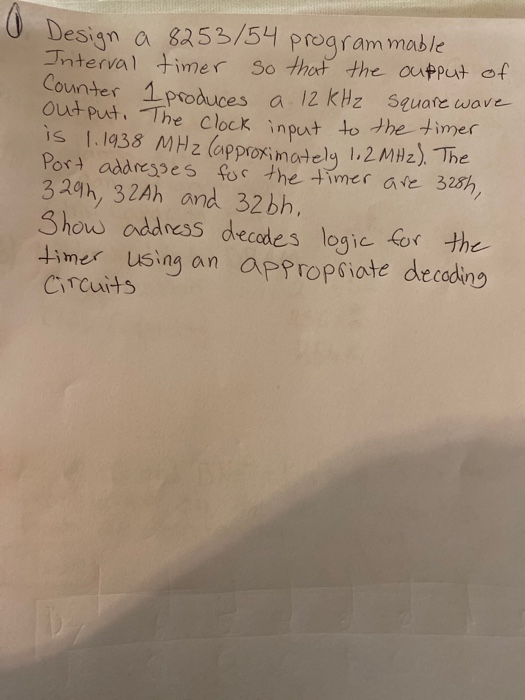 ① Design a 8253/54 programmable
Interval timer so that the output of
Counter 1 produces a 12 KHz square wave
output. The clock input to the timer
is 1.1938 MHz (approximately 1.2 MHz). The
Port addresses for the timer are 328h,
329h, 32Ah and 32bh.
Show address decodes logic for the
timer using an appropriate decoding
Circuits